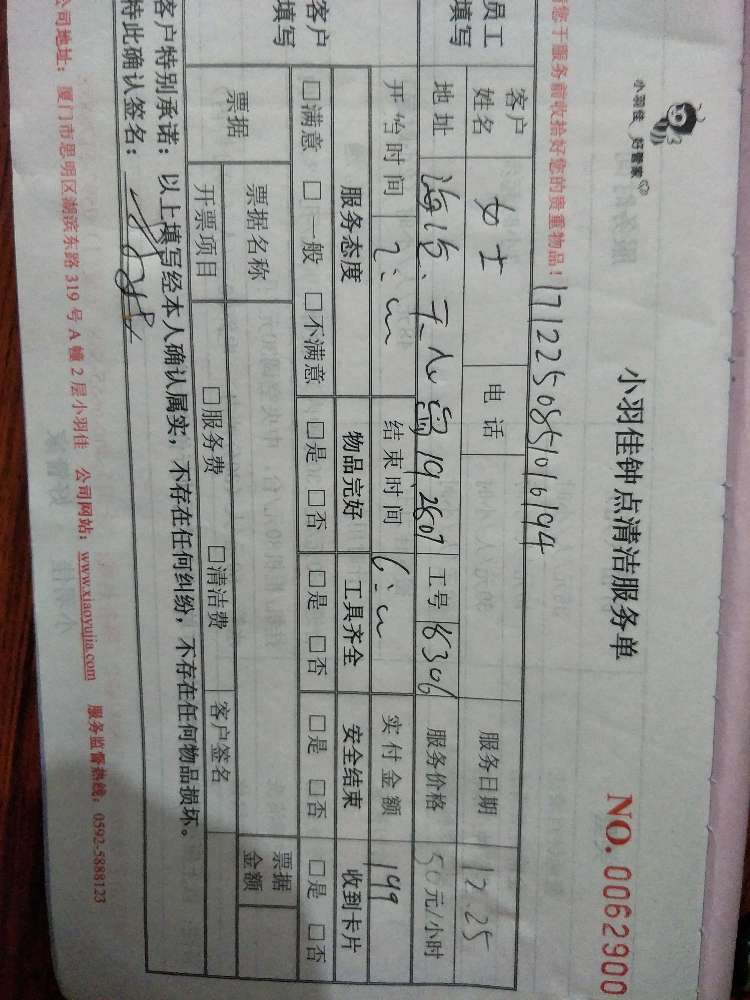 小羽佳 好管家
小羽佳钟点清洁服务单
NO. 0062900
您于服务前收拾好您的贵重物品！
171225085101694
员工填写
客户姓名 女士 电话 服务日期 12.25
地址 19,2507 工号 服务价格 50元/小时
开始时间 结束时间 实付金额 199
客户填写
服务态度 物品完好 工具齐全 安全结束 收到卡片
□满意 □一般 □不满意 □是 □否 □是 □否 □是 □否 □是 □否
票据 票据名称 票据金额
开票项目 □服务费 □清洁费 客户签名
客户特别承诺：以上填写经本人确认属实，不存在任何纠纷，不存在任何物品损坏。
特此确认签名：
公司地址：厦门市思明区湖滨东路319号A幢2层小羽佳 公司网站：www.xiaoyujia.com 服务监督热线：0592-5888123